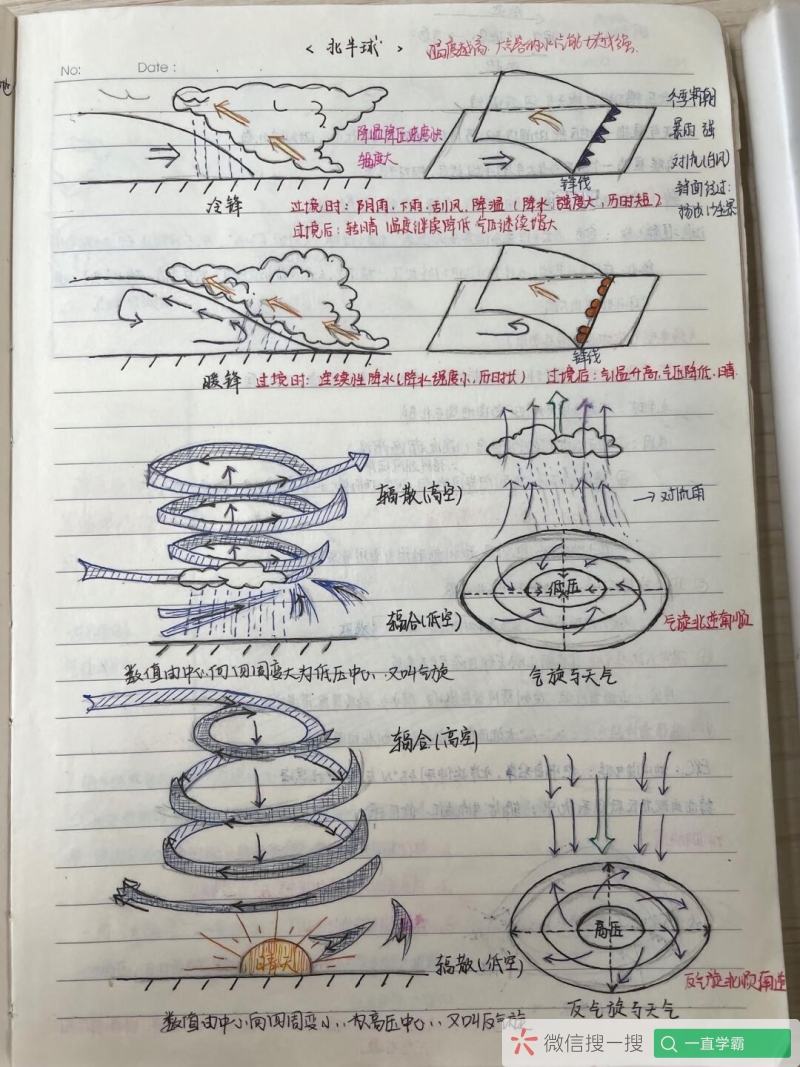 <北半球> 温度越高.大气容纳水汽能力越强.
No: Date:
降温降压速度快
辐度大
暴雨 强
锋面过过:
锋线
冷锋 过境时: 阴雨, 下雨, 刮风, 降温 (降水强度大, 历时短)
过境后: 转晴 温度继续降低 气压继续增大
锋线
暖锋 过境时: 连续性降水(降水强度小, 历时长) 过境后: 气温升高, 气压降低, 晴
辐散(高空)
→对流雨
低压
辐合(低空)
气旋北逆南顺
数值由中心向四周变大为低压中心, 又叫气旋
气旋与天气
辐合(高空)
高压
晴天
辐散(低空)
反气旋北顺南逆
反气旋与天气
数值由中心向四周变小, 为高压中心, 又叫反气旋
微信搜一搜 一直学霸